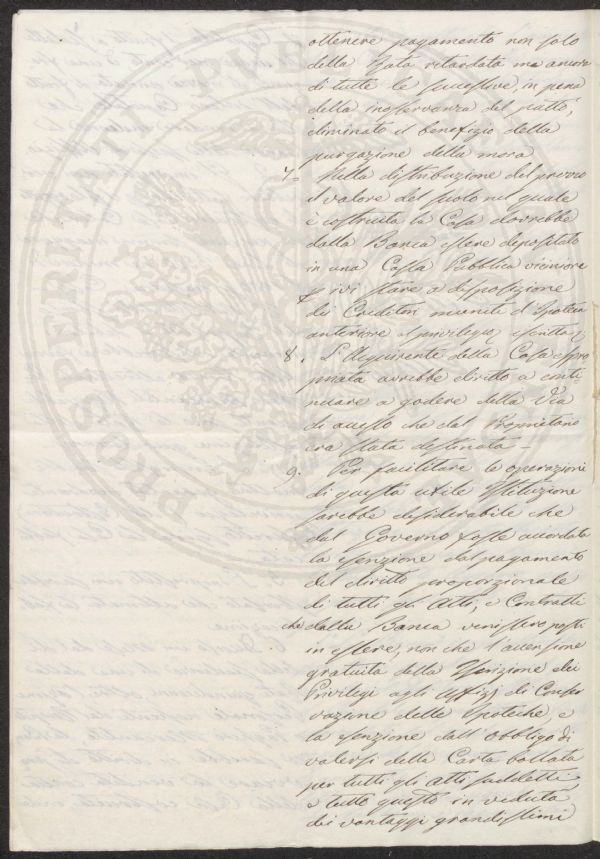 ottenere pagamento non solo
della Rata ritardata ma ancora
di tutte le successive, in pena
della inosservanza del patto,
eliminato il benefizio della
purgazione della mora
7.° Nella distribuzione del prezzo
il valore del suolo sul quale
è costruita la Casa dovrebbe
dalla Banca essere depositato
in una Cassa Pubblica viciniore
e ivi stare a disposizione
dei Creditori muniti d'Ipoteca
anteriore o privilegio
8. L'Acquirente della Casa espro
priata avrebbe diritto a conti
nuare a godere della Via
di accesso che dal Proprietario
era stata destinata –
9. Per facilitare le operazioni
di questa utile Istituzione
sarebbe desiderabile che
dal Governo fosse accordata
la esenzione dal pagamento
del diritto proporzionale
di tutti gli Atti, e Contratti
che dalla Banca venissero posti
in essere, non che l'accensione
gratuita della Iscrizione dei
Privilegi agli Uffizi di Conser
vazione delle Ipoteche, e
la esenzione dall'obbligo di
valersi della Carta bollata
per tutti gli Atti suddetti;
e tutto questo in veduta
dei vantaggi grandissimi
PROSPERITATI PUBLICAE